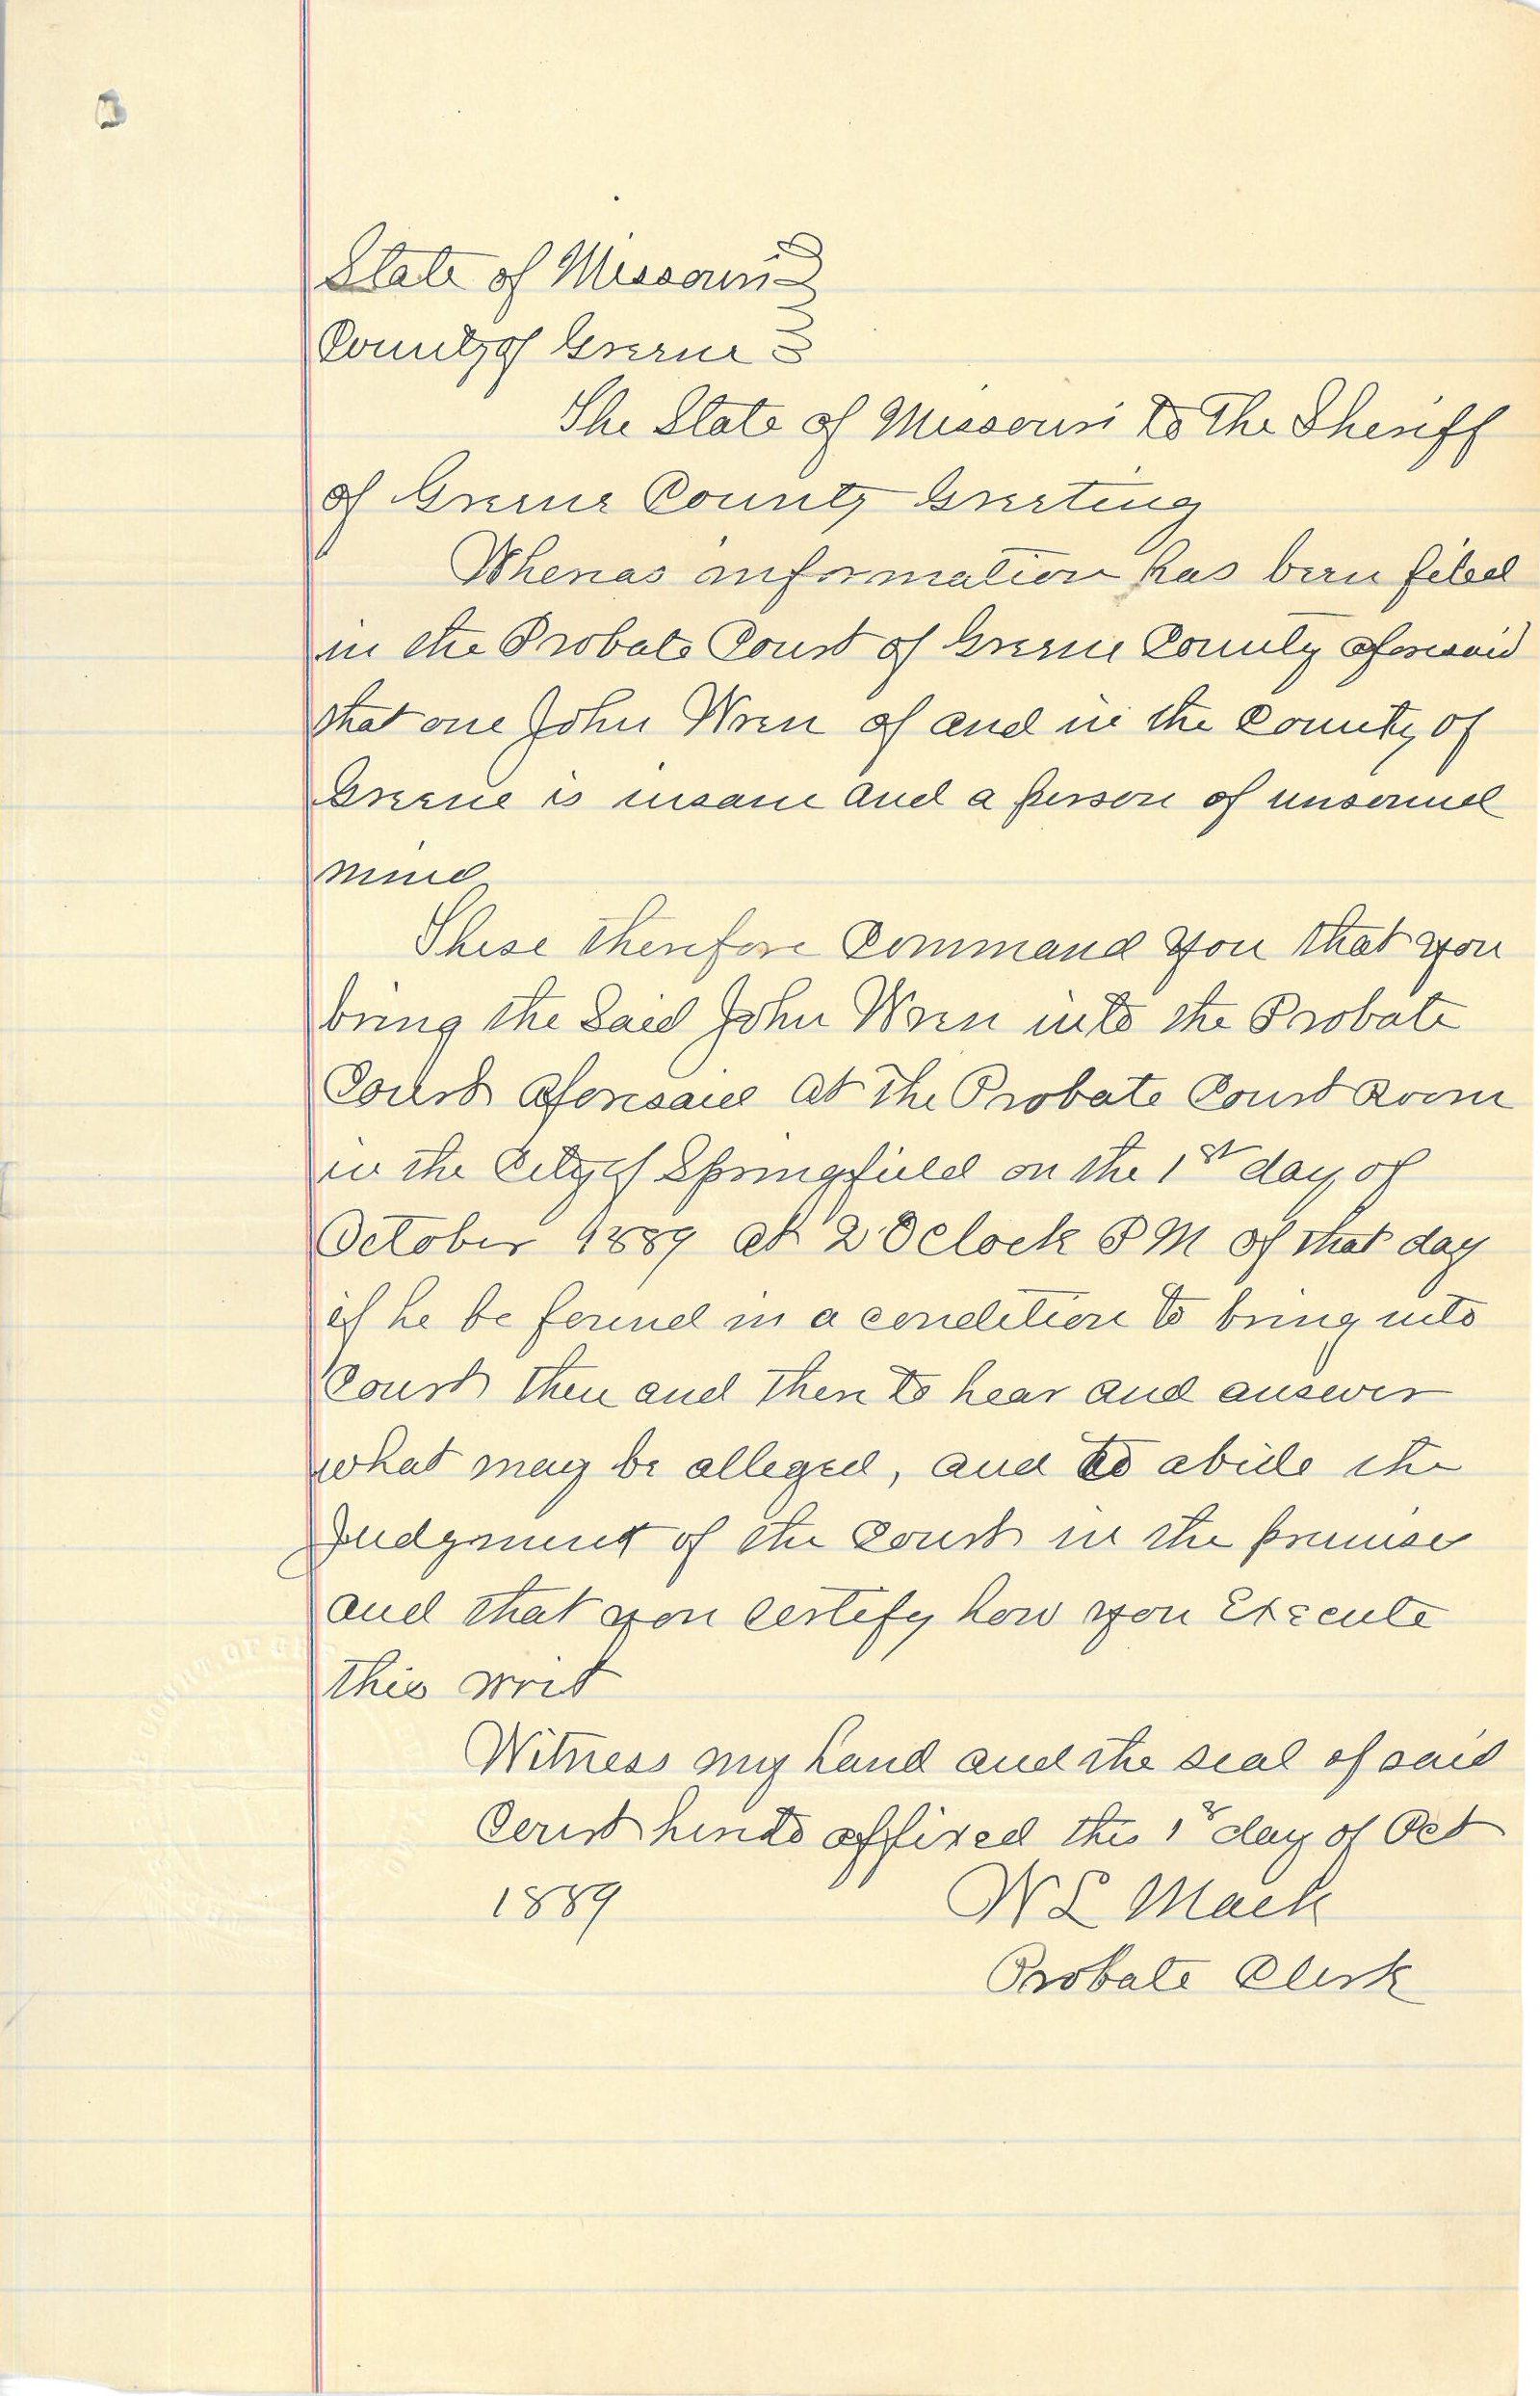 State of Missouri
County of Greene
The State of Missouri to the Sheriff
of Greene County Greeting
Whereas information has been filed
in the Probate Court of Greene County aforesaid
that one John Wren of and in the County of
Greene is insane and a person of unsound
mind
These therefore Command you that you
bring the Said John Wren into the Probate
Court aforesaid at the Probate Court Room
in the City of Springfield on the 1st day of
October 1889 at 2 OClock P M of that day
if he be found in a condition to bring into
Court then and there to hear and answer
what may be alleged, and to abide the
Judgment of the Court in the premises
and that you certify how you Execute
this writ
Witness my hand and the seal of said
Court hereto affixed this 1st day of Oct
1889 W L Mack
Probate Clerk
COURT OF